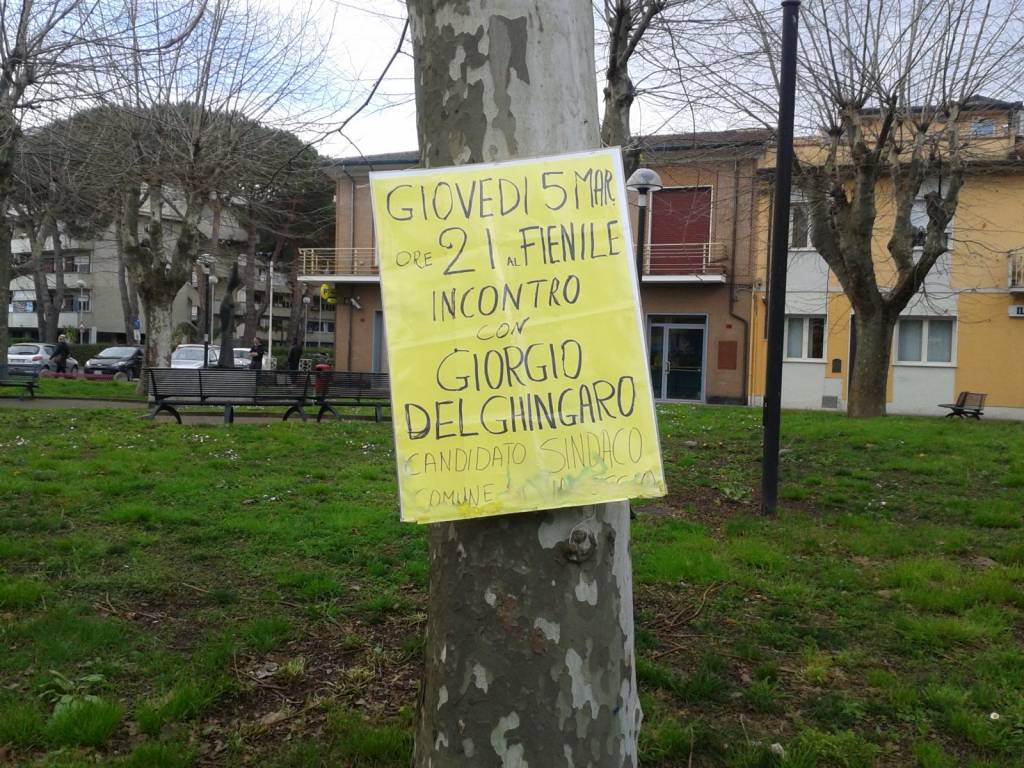 GIOVEDI 5 MAR
ORE 21 AL FIENILE
INCONTRO
CON
GIORGIO
DEL GHINGARO
CANDIDATO SINDACO
COMUNE